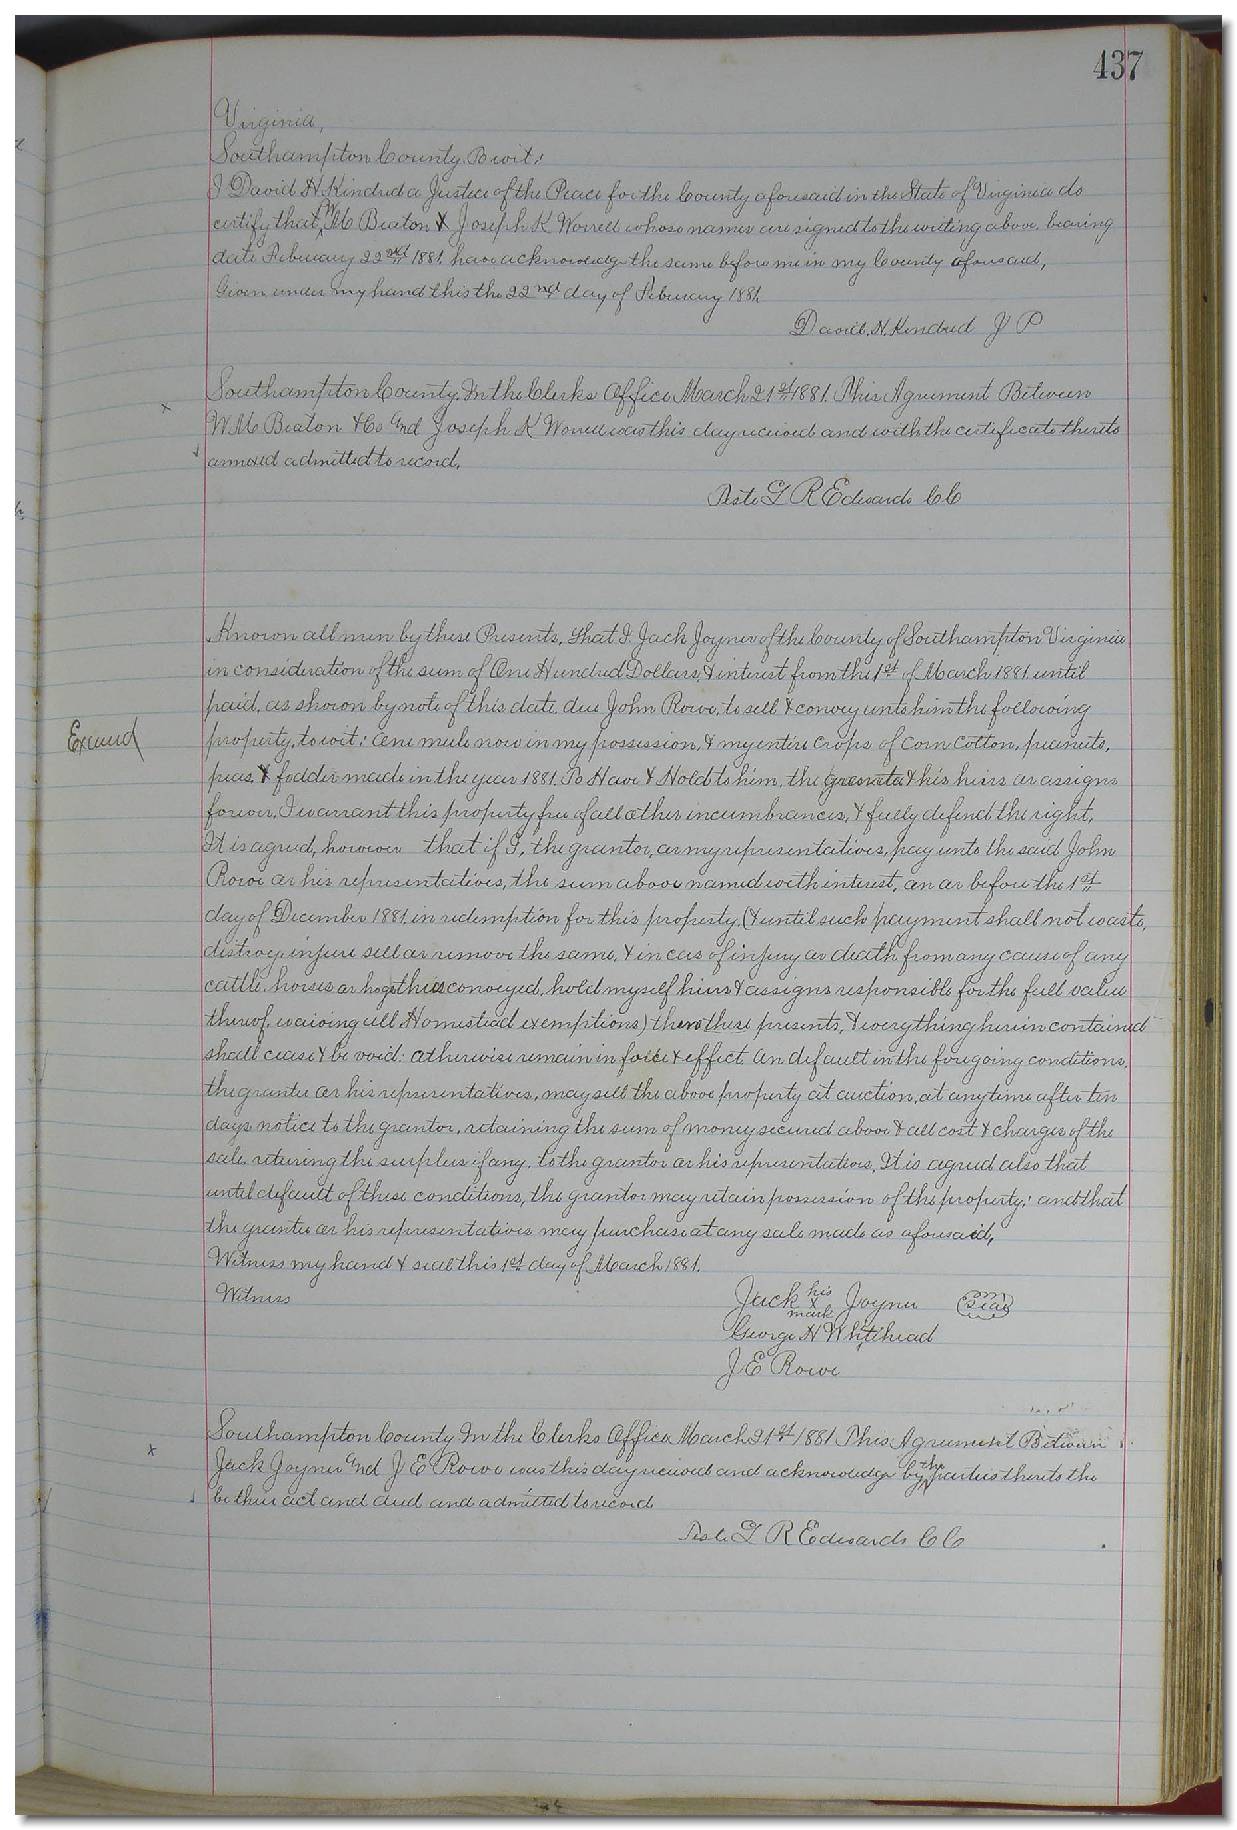 437
Virginia,
Southampton County, To wit:
I David N. Kindred a Justice of the Peace for the County aforesaid in the State of Virginia do
certify that W Mc Beaton & Joseph K Worrell whose names are signed to the writing above, bearing
date February 22nd 1881. have acknowledge the same before me in my County aforesaid,
Given under my hand this the 22nd day of February 1881.
David. N. Kindred J P
Southampton County. In the Clerks Office March 21st 1881. This Agreement Between
W. Mc Beaton & Co And Joseph K Worrell was this day received and with the certificate thereto
annexed admitted to record.
Teste G R Edwards C C
Known all men by these Presents, That I. Jack Joyner of the County of Southampton Virginia
in consideration of the sum of One Hundred Dollars, & interest from the 1st of March 1881 until
paid, as shown by note of this date due John Rowe, to sell & convey unto him the following
property, to wit: One mule now in my possession, & my entire crops of corn cotton, peanuts,
peas, & fodder made in the year 1881. To Have & Hold to him, the grantee & his heirs or assigns
forever, I warrant this property free of all other incumbrances, & fully defend the right,
It is agreed, however that if I, the grantor, or my representatives, pay unto the said John
Rowe or his representatives, the sum above named with interest, on or before the 1st
day of December 1881 in redemption for this property, (& until such payment shall not waste,
destroy injure sell or remove the same, & in cas of injury or death from any cause of any
cattle, horses or hogs thus conveyed, hold myself hiers & assigns responsible for the full value
thereof, waiving all Homestead exemptions) then these presents, & everything herein contained
shall cease & be void: otherwise remain in force & effect. On default in the foregoing conditions,
the grantee or his representatives, may sell the above property at auction, at anytime after ten
days notice to the grantor, retaining the sum of money secured above & all cost & charges of the
sale, returing the surplus if any, to the grantor or his representatives, It is agreed also that
until default of these conditions, the grantor may retain possession of the property; and that
the grantee or his representatives may purchase at any sale made as aforesaid,
Witness my hand & seal this 1st day of March 1881.
Executed
Witness
Jack his x mark Joyner Seal
George H Whitehead
J E Rowe
Southampton County In the Clerks Office March 21st 1881 This Agreement Between
Jack Joyner And J E Rowe was this day received and acknowledge by the parties thereto the
be their act and deed and admitted to record
Teste G R Edwards C C